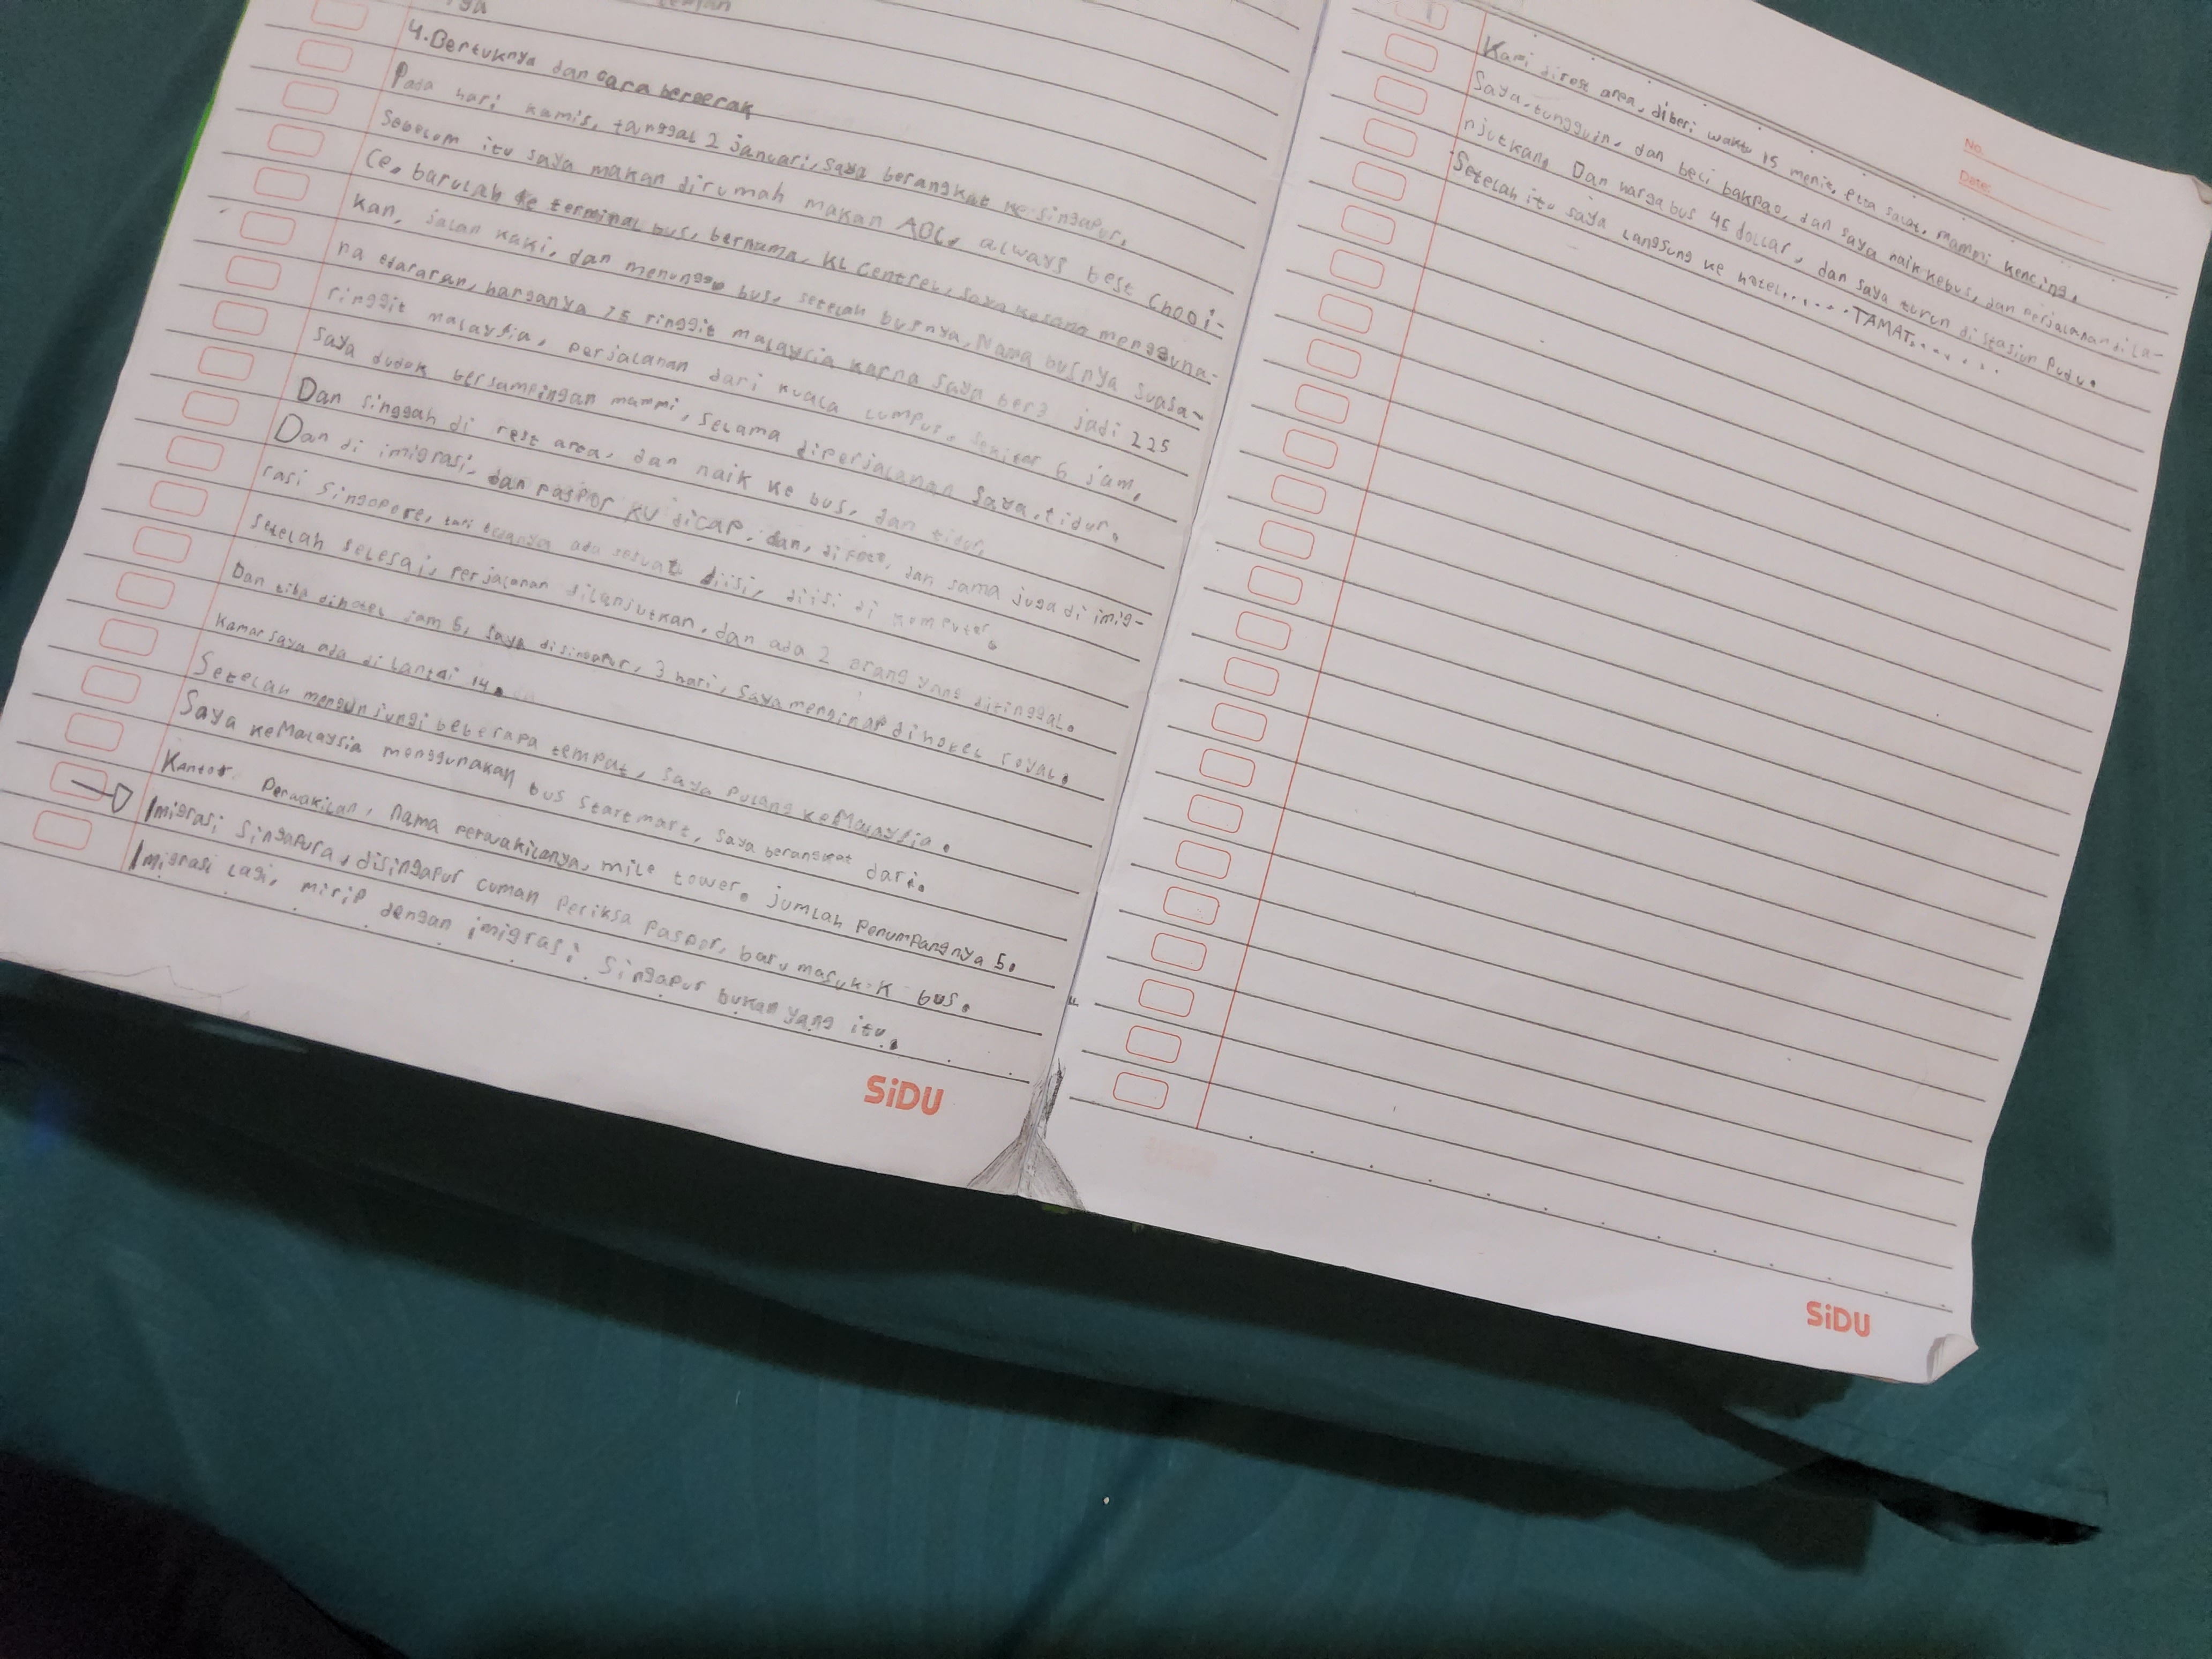 4. Bertuknya dan cara bergerak
Pada hari kamis, tanggal 2 januari, saya berangkat ke singapur.
Sebelum itu saya makan dirumah makan ABC, always best Chooi-
Ce, barulah ke terminal bus, bernama, KL Centrel, saya kesana mengguna-
kan, jalan kaki, dan menunggu bus, setelah busnya, Nama busnya suasa-
na edararan, harganya 75 ringgit malaysia karna saya ber3 jadi 225
ringgit malaysia, perjalanan dari kuala lumpur, sekitar 6 jam,
Saya duduk bersampingan mammi, selama diperjalanan saya, tidur.
Dan singgah di rest area, dan naik ke bus, dan tidur,
Dan di imigrasi, dan paspor ku dicap, dan, di foto, dan sama juga di imig-
rasi Singapore, tari bedanya ada sesuatu diisi, diisi di komputer,
setelah selesai, perjalanan dilanjutkan, dan ada 2 orang yang ditinggal.
Dan tiba dihotel jam 5, saya disingapur, 3 hari, saya menginap dihotel royal.
Kamar saya ada di lantai 14.
Setelah mengunjungi beberapa tempat, saya pulang ke Malaysia.
Saya keMalaysia menggunakan bus Startmart, saya berangkat dari.
Kantor Perwakilan, nama perwakilanya, mile tower. jumlah Penumpangnya 5.
Imigrasi Singapura, disingapur cuman periksa paspor, baru masuk K bus.
Imigrasi lagi, mirip dengan imigrasi Singapur bukan yang itu.
SiDU
No.
Date:
Kami direst area, diberi waktu 15 menit, etta salat, mammi kencing.
Saya, tungguin, dan beli bakpao, dan saya naik kebus, dan perjalanan di la-
njutkan. Dan harga bus 45 dollar, dan saya turun di stasiun Pudu.
Setelah itu saya langsung ke hotel......TAMAT.......
SiDU